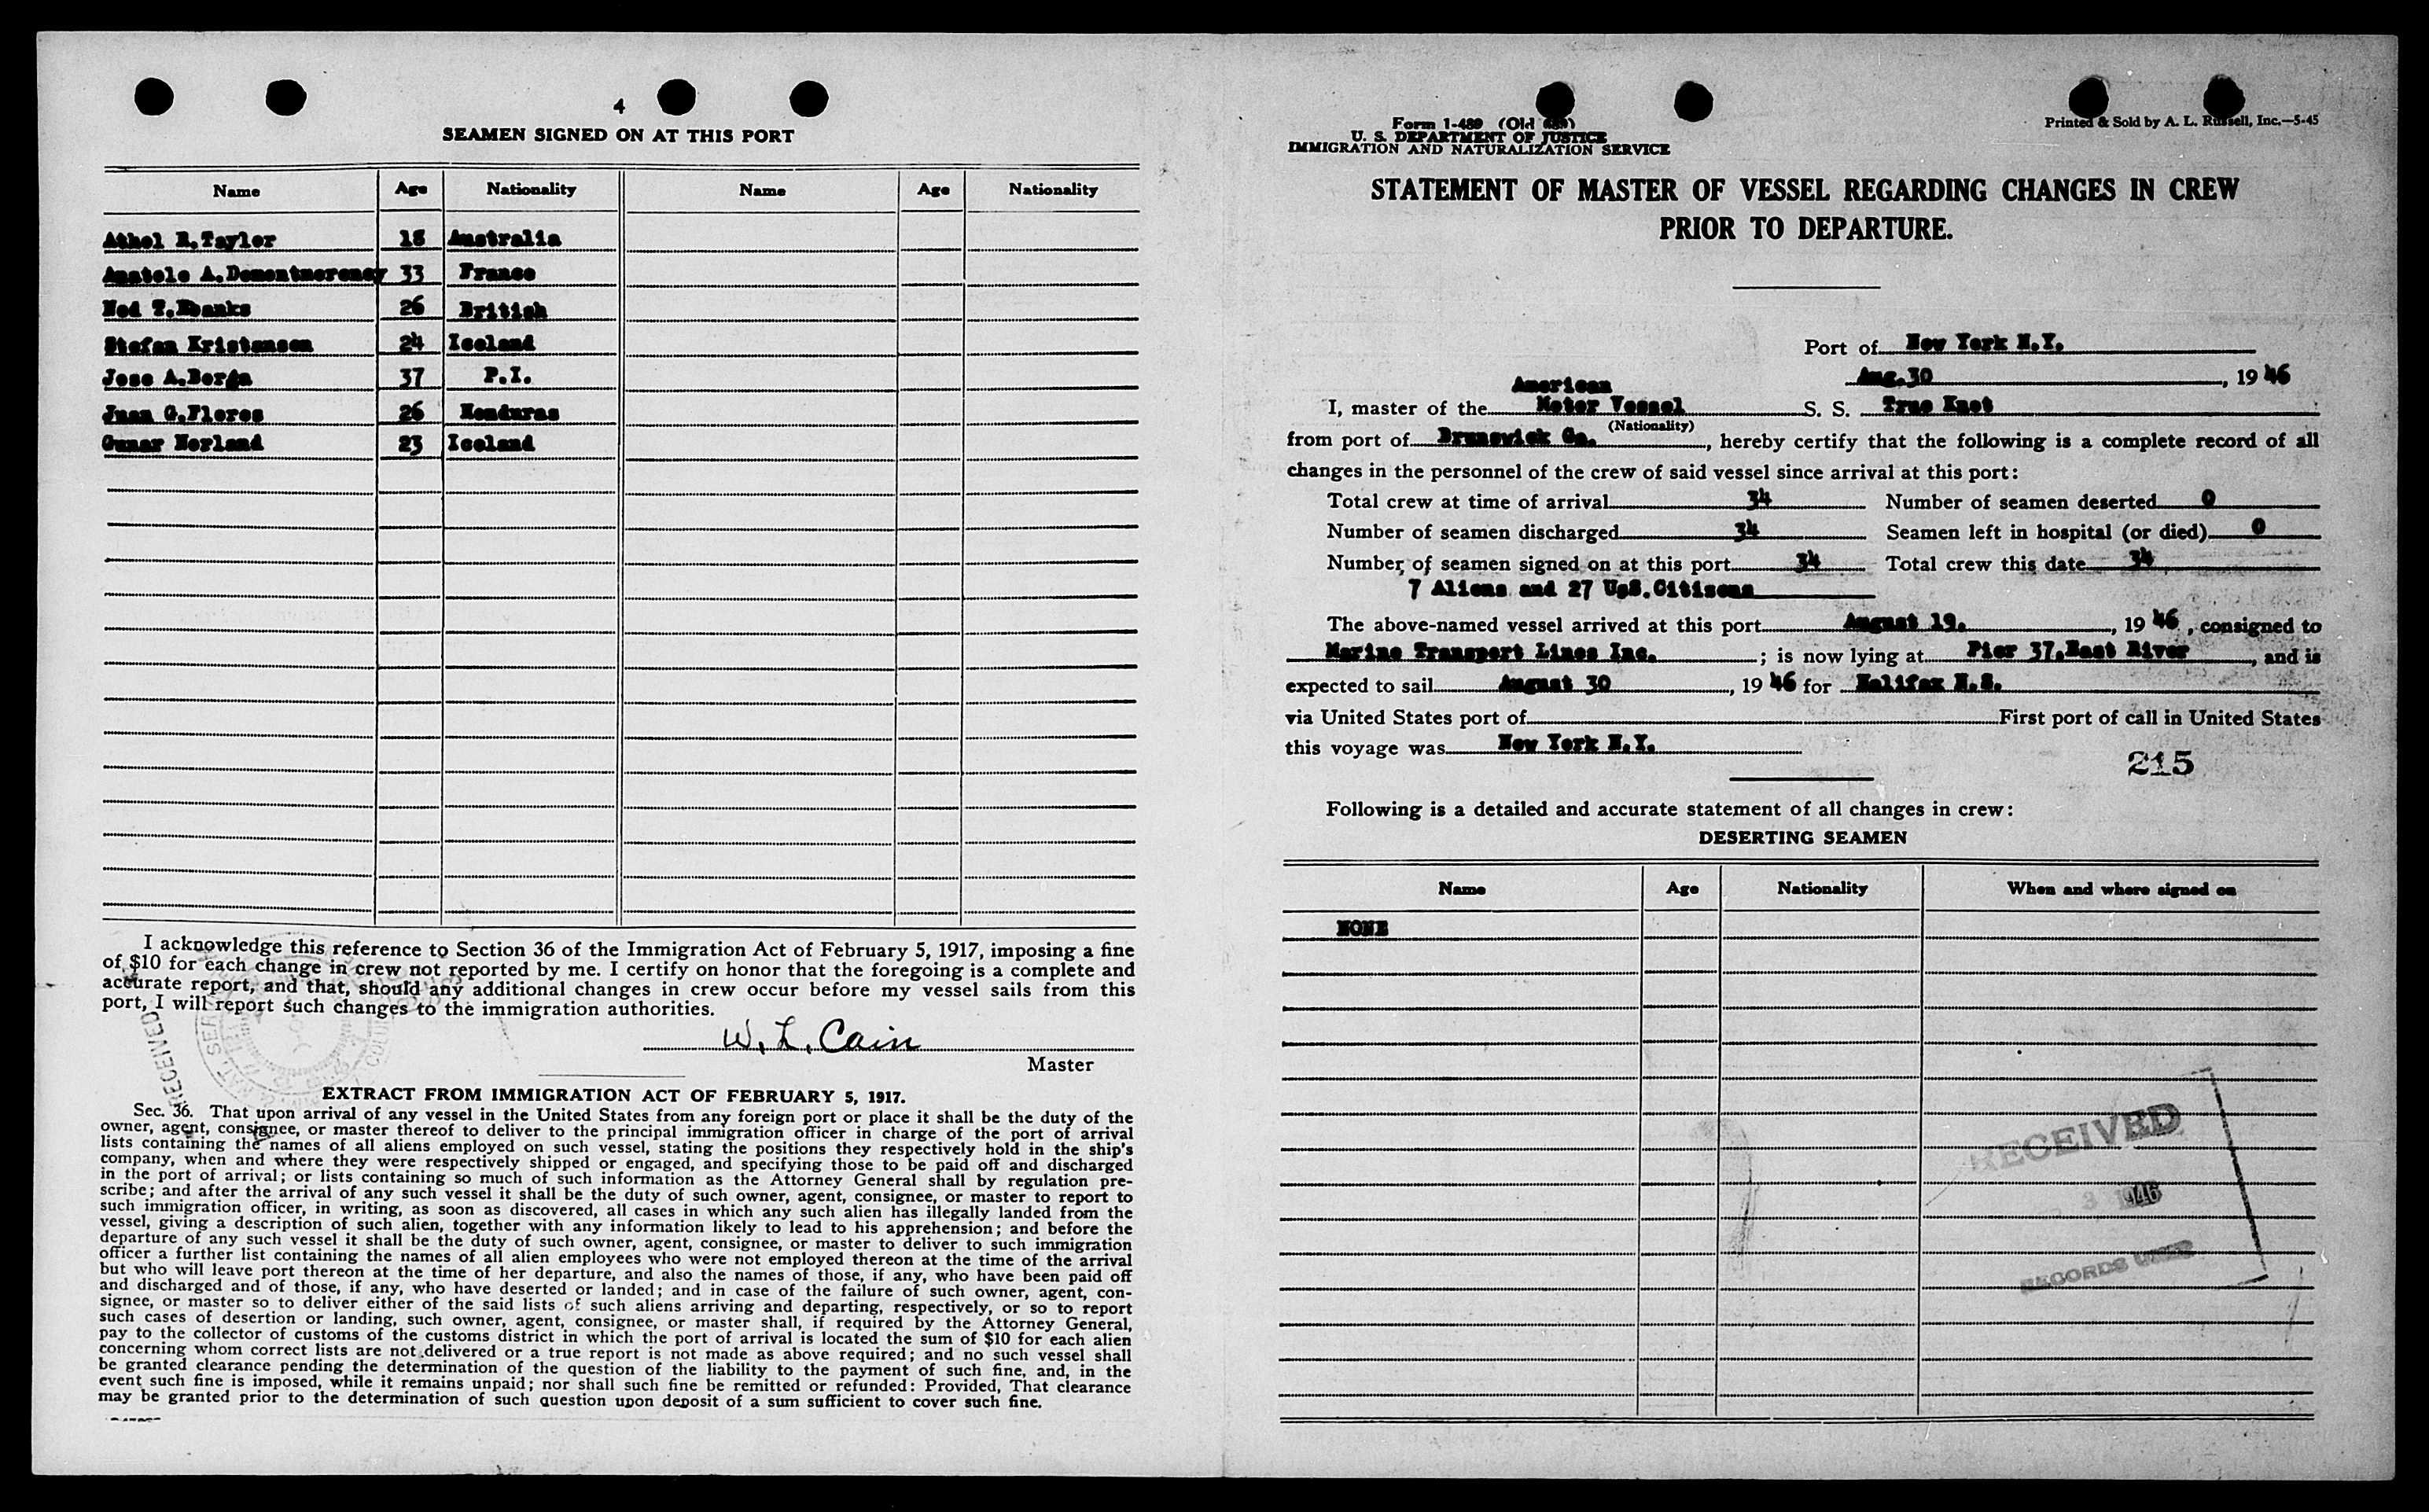 4
SEAMEN SIGNED ON AT THIS PORT
Name Age Nationality Name Age Nationality
Athol R.Taylor 18 Australia
Anatole A.Demontmorency 33 France
Ned T.Ebanks 26 British
Stefan Kristensen 24 Iceland
Jose A.Borga 37 P.I.
Juan G.Flores 26 Honduras
Gunar Norland 23 Iceland
I acknowledge this reference to Section 36 of the Immigration Act of February 5, 1917, imposing a fine
of $10 for each change in crew not reported by me. I certify on honor that the foregoing is a complete and
accurate report, and that, should any additional changes in crew occur before my vessel sails from this
port, I will report such changes to the immigration authorities.
W. L. Cain
Master
RECEIVED
EXTRACT FROM IMMIGRATION ACT OF FEBRUARY 5, 1917.
Sec. 36. That upon arrival of any vessel in the United States from any foreign port or place it shall be the duty of the
owner, agent, consignee, or master thereof to deliver to the principal immigration officer in charge of the port of arrival
lists containing the names of all aliens employed on such vessel, stating the positions they respectively hold in the ship's
company, when and where they were respectively shipped or engaged, and specifying those to be paid off and discharged
in the port of arrival; or lists containing so much of such information as the Attorney General shall by regulation pre-
scribe; and after the arrival of any such vessel it shall be the duty of such owner, agent, consignee, or master to report to
such immigration officer, in writing, as soon as discovered, all cases in which any such alien has illegally landed from the
vessel, giving a description of such alien, together with any information likely to lead to his apprehension; and before the
departure of any such vessel it shall be the duty of such owner, agent, consignee, or master to deliver to such immigration
officer a further list containing the names of all alien employees who were not employed thereon at the time of the arrival
but who will leave port thereon at the time of her departure, and also the names of those, if any, who have been paid off
and discharged and of those, if any, who have deserted or landed; and in case of the failure of such owner, agent, con-
signee, or master so to deliver either of the said lists of such aliens arriving and departing, respectively, or so to report
such cases of desertion or landing, such owner, agent, consignee, or master shall, if required by the Attorney General,
pay to the collector of customs of the customs district in which the port of arrival is located the sum of $10 for each alien
concerning whom correct lists are not delivered or a true report is not made as above required; and no such vessel shall
be granted clearance pending the determination of the question of the liability to the payment of such fine, and, in the
event such fine is imposed, while it remains unpaid; nor shall such fine be remitted or refunded: Provided, That clearance
may be granted prior to the determination of such question upon deposit of a sum sufficient to cover such fine.
Form I-489 (Old 689)
U. S. DEPARTMENT OF JUSTICE
IMMIGRATION AND NATURALIZATION SERVICE
Printed & Sold by A. L. Russell, Inc.—5-45
STATEMENT OF MASTER OF VESSEL REGARDING CHANGES IN CREW
PRIOR TO DEPARTURE.
Port of New York N.Y.
Aug.30, 1946
American
I, master of the Motor Vessel S. S. True Knot
(Nationality)
from port of Brunswick Ga., hereby certify that the following is a complete record of all
changes in the personnel of the crew of said vessel since arrival at this port:
Total crew at time of arrival 34 Number of seamen deserted 0
Number of seamen discharged 34 Seamen left in hospital (or died) 0
Number of seamen signed on at this port 34 Total crew this date 34
7 Aliens and 27 U.S.Citizens
The above-named vessel arrived at this port August 19., 1946, consigned to
Marine Transport Lines Inc.; is now lying at Pier 37,East River, and is
expected to sail August 30, 1946 for Halifax N.S.
via United States port of First port of call in United States
this voyage was New York N.Y.
215
Following is a detailed and accurate statement of all changes in crew:
DESERTING SEAMEN
Name Age Nationality When and where signed on
NONE
RECEIVED
3 1946
RECORDS UNIT